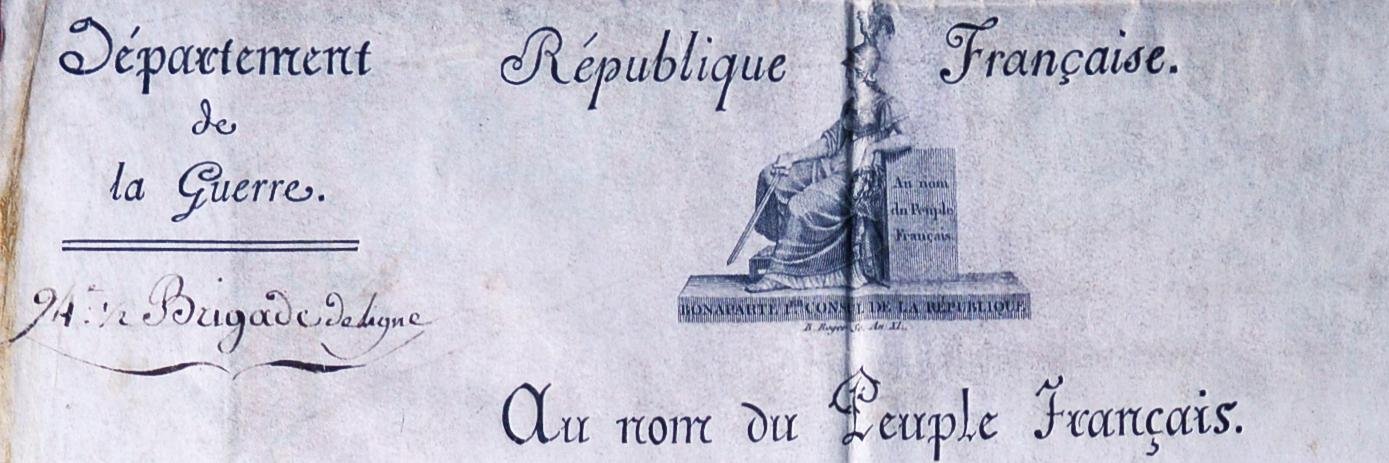 Département
de
la Guerre.
94.e 1/2 Brigade de ligne
République Française.
Au nom
du Peuple
Français.
BONAPARTE 1er CONSUL DE LA RÉPUBLIQUE
B. Roger Sc. An XI.
Au nom du Peuple Français.